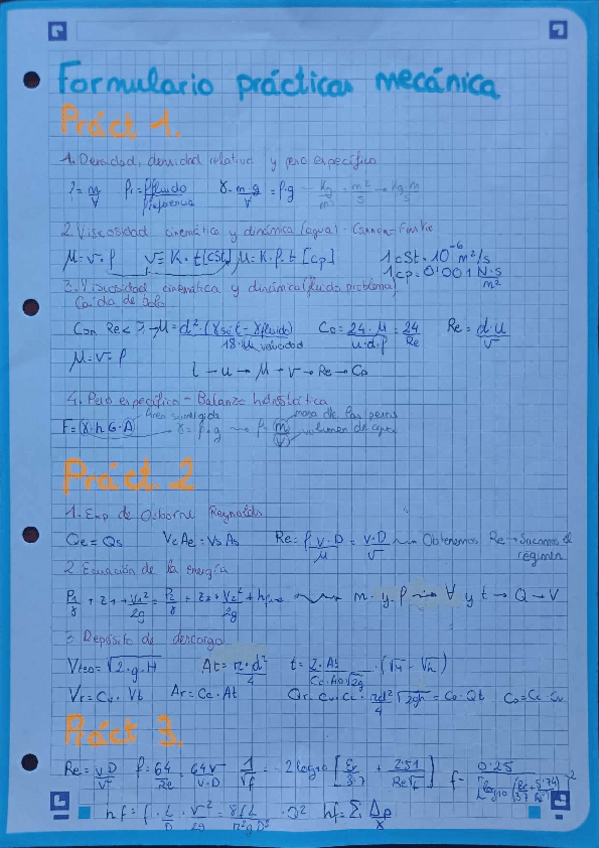 Formulario prácticas mecánica
Práct 1.
1. Densidad, densidad relativa y peso específico
ρ = m/V ρr = ρfluido/ρreferencia γ = m·g/V = ρ·g
2. Viscosidad cinemática y dinámica (agua) - Cannon-Fenske
μ = ν·ρ ν = K·t [cSt] μ = K·ρ·t [Cp] 1 cSt = 10^-6 m²/s
1 cp = 0'001 N·s/m²
3. Viscosidad cinemática y dinámica (fluido problema)
Caída de bola
Con Re < 1 → μ = d²·(γsct - γfluido)/18·velocidad CD = 24·μ/u·d·ρ = 24/Re Re = d·u/ν
μ = ν·ρ t → u → μ → ν → Re → CD
4. Peso específico - Balanza hidrostática
área sumergida masa de las pesas
F = γ·hG·A γ = ρ·g ρ = m/V volumen de agua
Práct. 2
1. Exp de Osborne Reynolds
Qe = Qs VeAe = VsAs Re = ρ v·D/μ = v·D/ν Obtenemos Re → Sacamos el régimen
2. Ecuación de la energía
P1/γ + z1 + v1²/2g = P2/γ + z2 + v2²/2g + h m y ρ → ∀ y t → Q → V
3. Depósito de descarga
Vteo = √2·g·H At = π·d²/4 t = 2·At/Cc·Ao√2g · (√h - √h)
Vr = Cv·Vt Ar = Cc·At Qr = Cv·Cc·πd²/4 √2gh = CD·Qt CD = Cc·Cv
Práct 3.
Re = v·D/ν f = 64/Re = 64ν/v·D 1/√f = -2log10 [εr/3'7 + 2'51/Re√f] f = 0'25/[log10 (εr/3'7 + 5'74/Re)]²
hf = f·L/D·v²/2g = 8fL/π²gD⁵·Q² hf = Σ Δp/γ